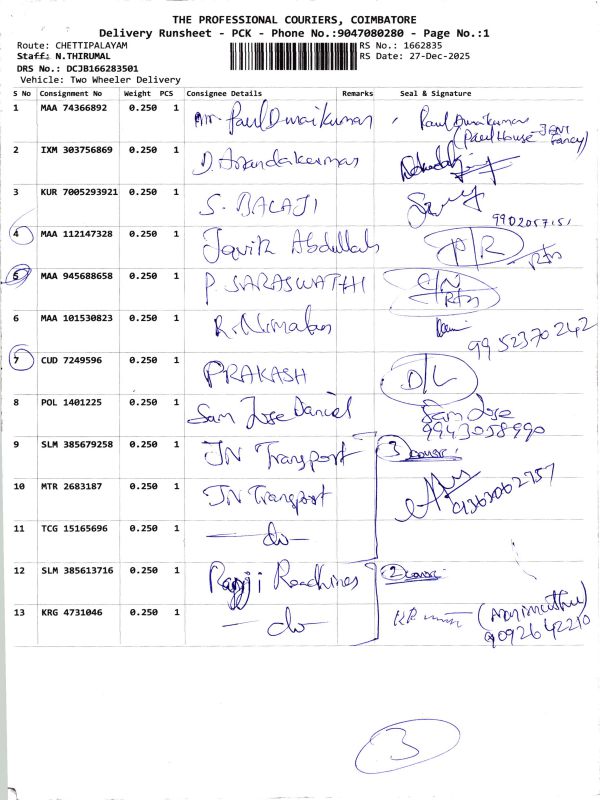 THE PROFESSIONAL COURIERS, COIMBATORE
Delivery Runsheet - PCK - Phone No.:9047080280 - Page No.:1
Route: CHETTIPALAYAM RS No.: 1662835
Staff: N.THIRUMAL RS Date: 27-Dec-2025
DRS No.: DCJB166283501
Vehicle: Two Wheeler Delivery
S No Consignment No Weight PCS Consignee Details Remarks Seal & Signature
1 MAA 74366892 0.250 1 Mr. Paul Duraikumar Paul Duraikumar
(Paul House
2 IXM 303756869 0.250 1 D. Anandakumar
3 KUR 7005293921 0.250 1 S. BALAJI
4 MAA 112147328 0.250 1 Abdullah P/R Rtn
5 MAA 945688658 0.250 1 P SARASWATHI C/N
Rtn
6 MAA 101530823 0.250 1 R. Nirmalan 9952370242
7 CUD 7249596 0.250 1 PRAKASH D/L
8 POL 1401225 0.250 1 Sam Jose Daniel Sam Jose
9943058990
9 SLM 385679258 0.250 1 JN Transport 3
10 MTR 2683187 0.250 1 JN Transport
11 TCG 15165696 0.250 1 —do—
12 SLM 385613716 0.250 1 2
13 KRG 4731046 0.250 1 —do—
3